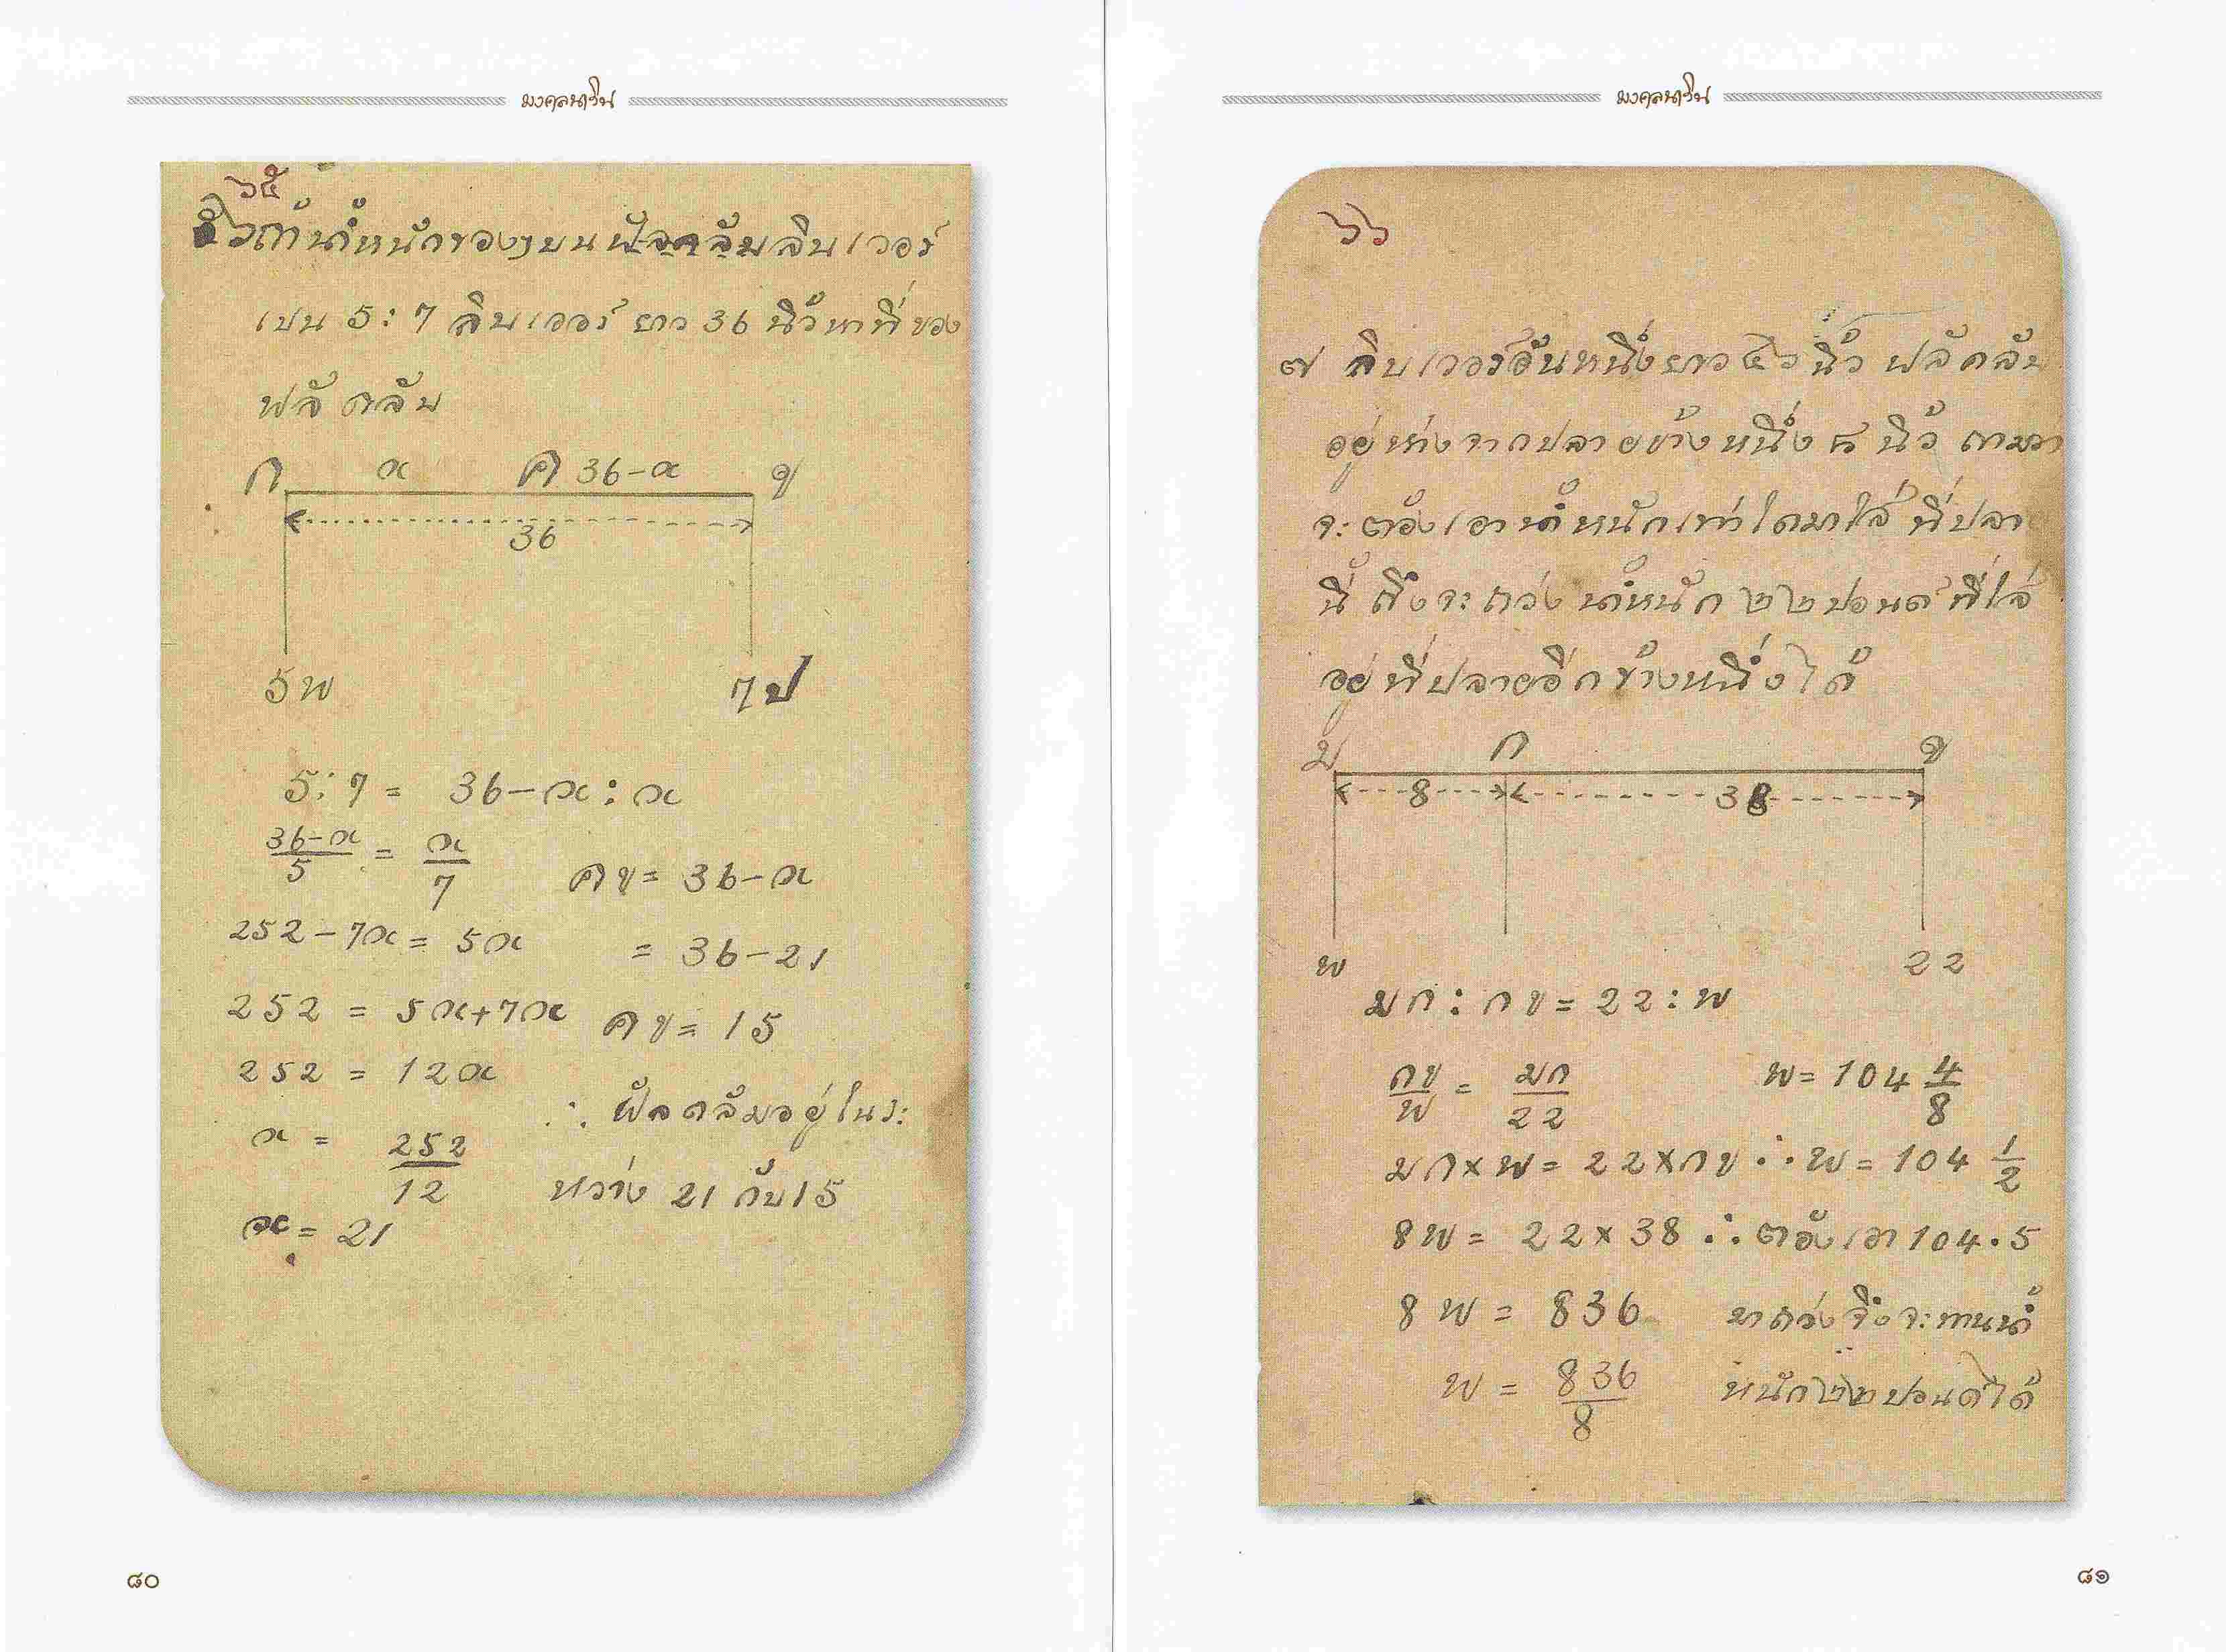 มงคลนาวิน
๖๕
๖ ถ้าน้ำหนักของๆบนฟัลคลัมลิบเวอร์
เปน 5:7 ลิบเวอร์ ยาว 36 นิ้วหาที่ของ
ฟลัคลัม
ก x ค 36-x ข
36
5พ 7ป
5:7 = 36-x : x
36-x/5 = x/7 คข = 36-x
252-7x = 5x = 36-21
252 = 5x+7x คข = 15
252 = 12x
∴ ฟัลคลัมอยู่ในระ
x = 252/12 หว่าง 21 กับ 15
x = 21
๘๐
มงคลนาวิน
๖๖
๗ ลิบเวอร์อันหนึ่งยาว ๔๖ นิ้ว ฟลัคลัม
อยู่ห่างจากปลายข้างหนึ่ง ๘ นิ้ว ถามว่า
จะต้องเอาน้ำหนักเท่าใดมาใส่ที่ปลาย
นี้ ถึงจะถ่วงน้ำหนัก ๒๒ ปอนด์ ที่ใส่
อยู่ที่ปลายอีกข้างหนึ่งได้
ม ก ข
8 38
พ 22
มก : กข = 22 : พ
กข/พ = มก/22 พ = 104 4/8
มก×พ = 22×กข ∴ พ = 104 1/2
8พ = 22×38 ∴ ต้องเอา 104.5
8พ = 836 มาถ่วงจึงจะทานน้ำ
พ = 836/8 หนัก ๒๒ ปอนด์ได้
๘๑